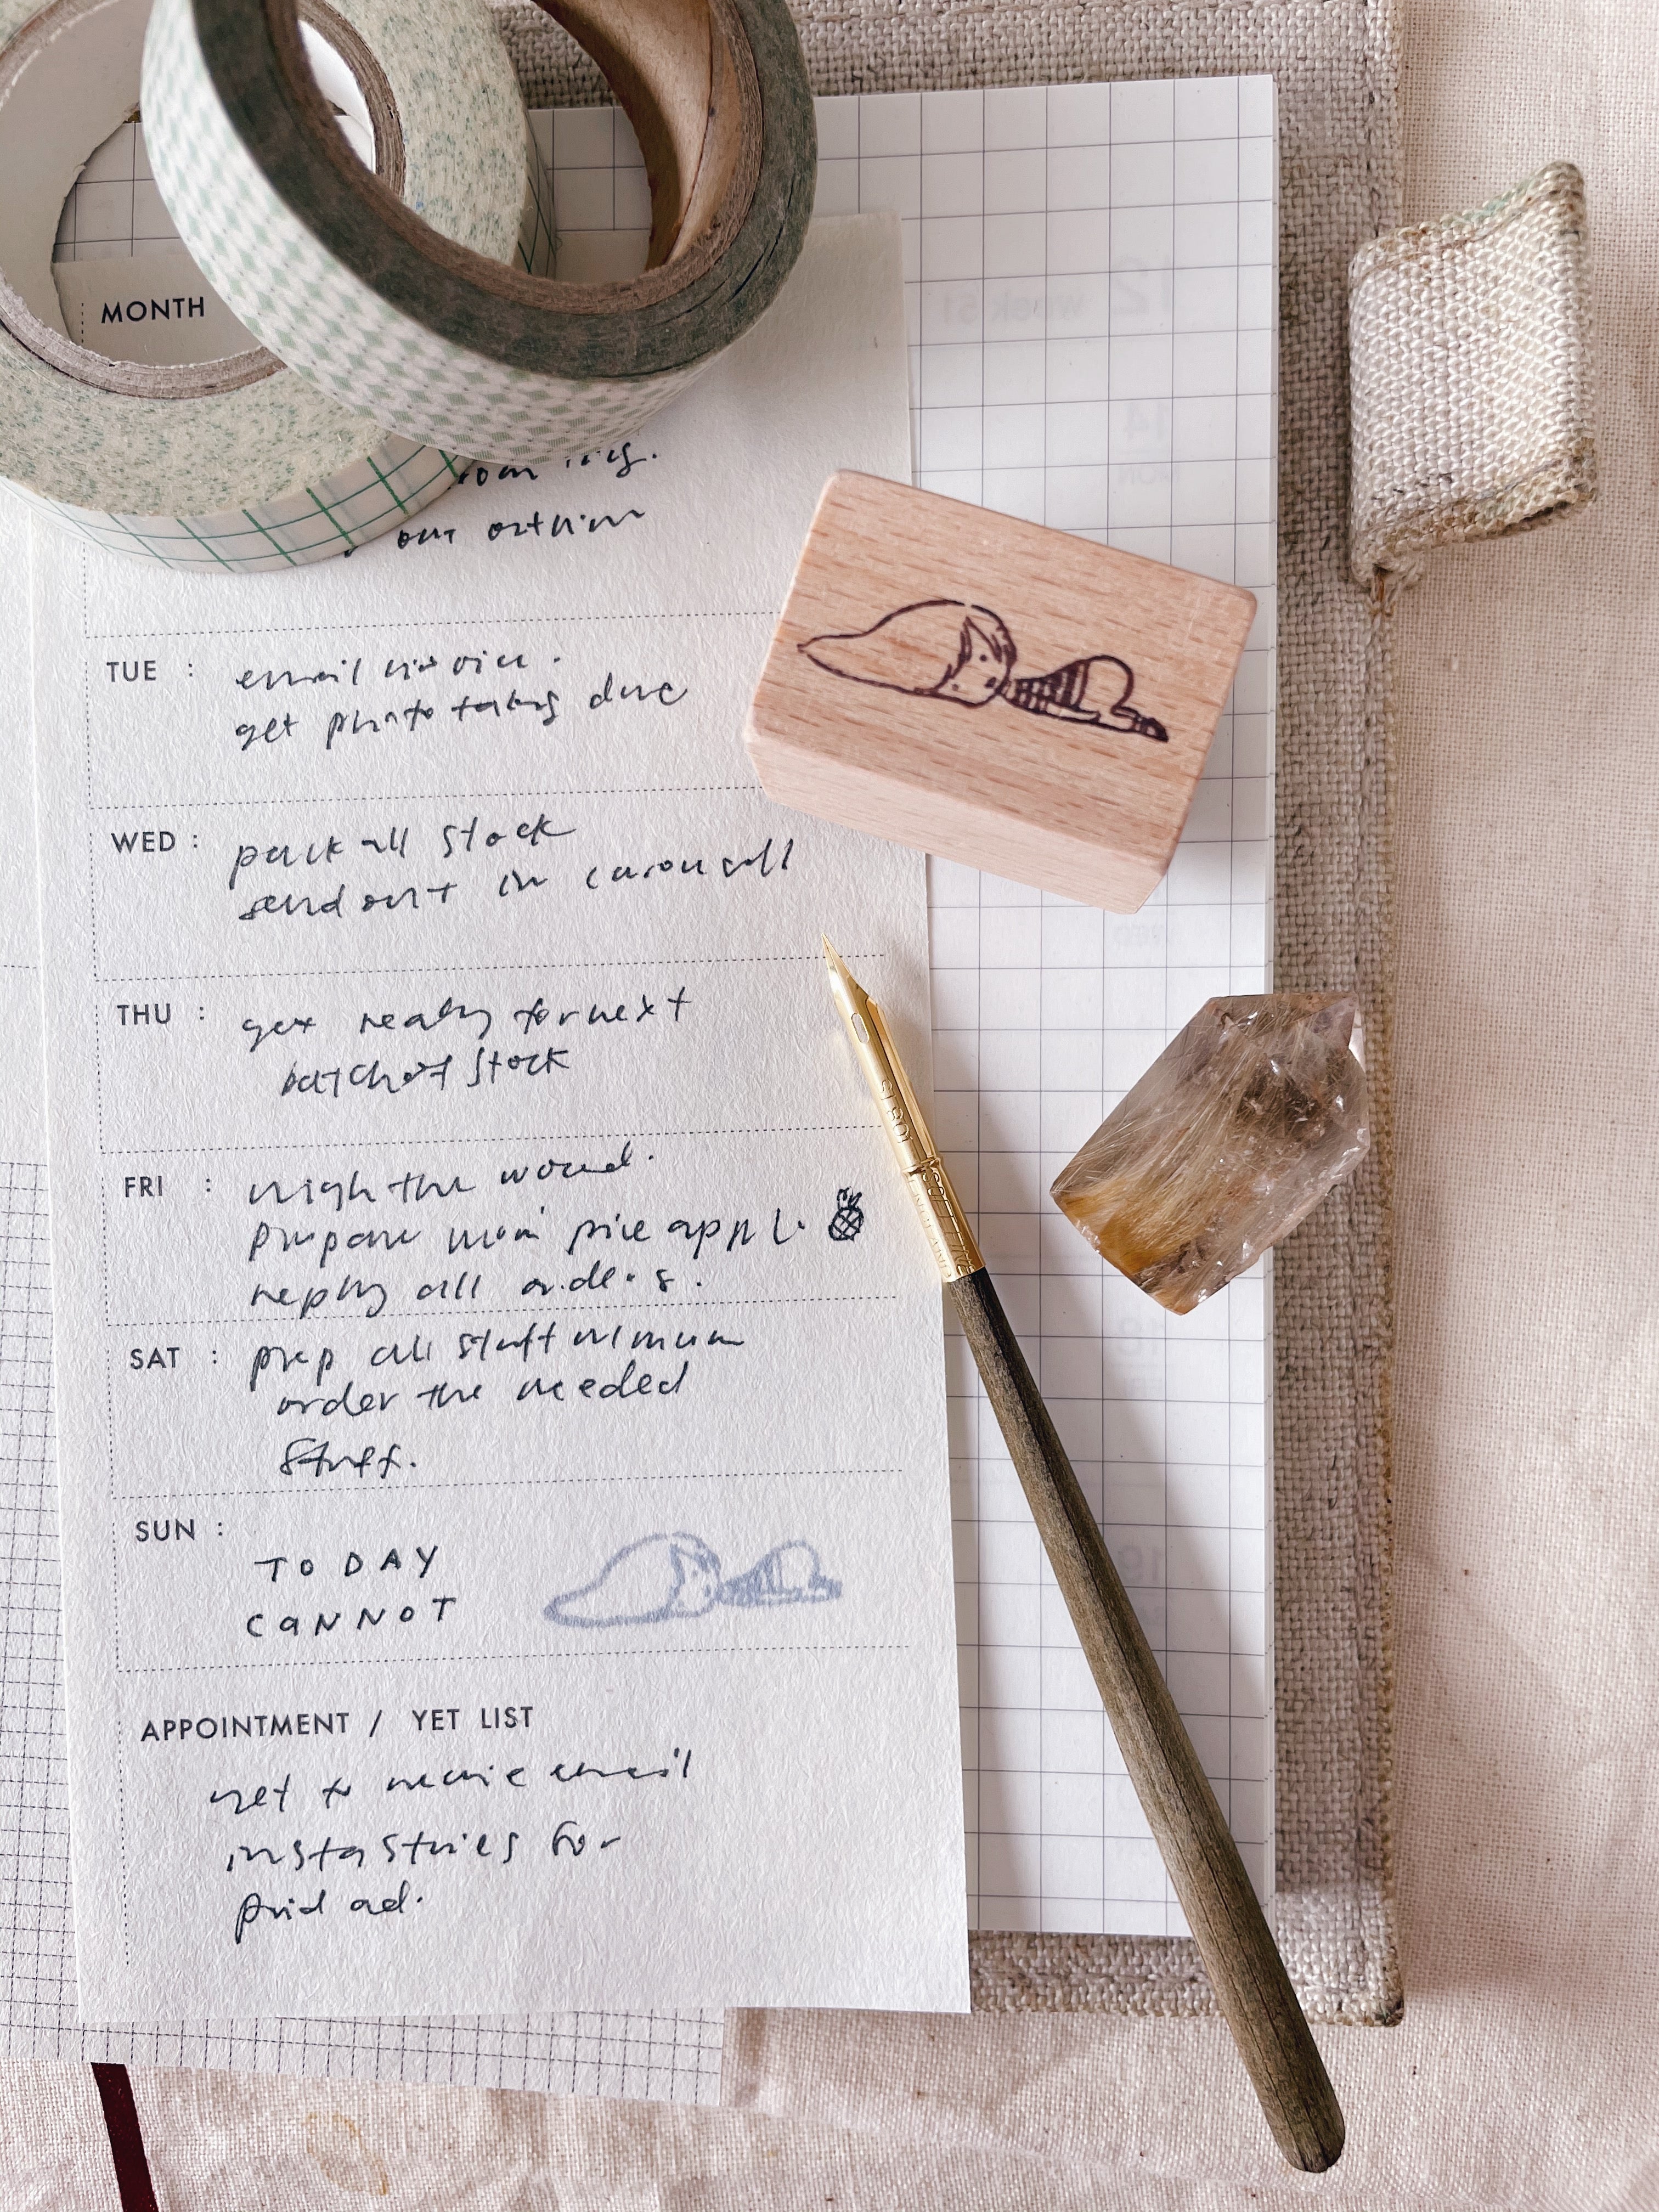 MONTH
out
TUE : email invoice.
get photo taking done
WED : pack all stock
send out in carousell
THU : get ready for next
batch of stock
FRI : weigh the wound.
prepare mom' pineapple.
reply all orders.
SAT : prep all stuff
order the needed
stuff.
SUN :
TODAY
CANNOT
APPOINTMENT / YET LIST
yet to receive email
insta stories for
paid ad.
12 week 51
14
MON
WED
18
19